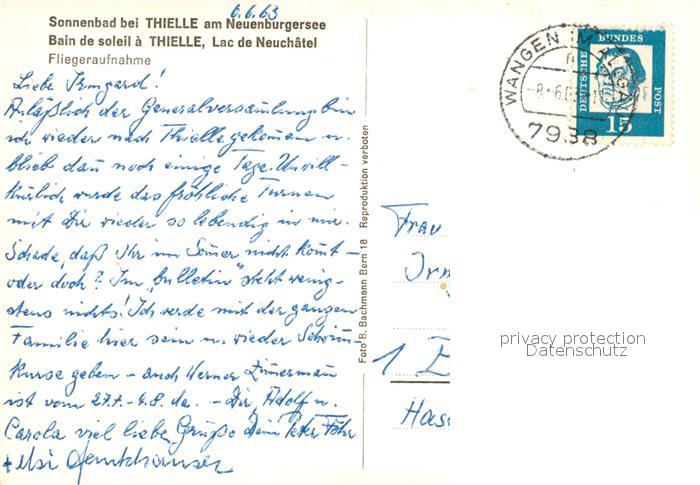 6.6.63
Sonnenbad bei THIELLE am Neuenburgersee
Bain de soleil à THIELLE, Lac de Neuchâtel
Fliegeraufnahme
Liebe Irmgard!
Anläßlich der Generalversam̅lung bin
ich wieder nach Thielle gekommen u.
blieb dan̅ noch einige Tage. Unwill-
kürlich wurde das fröhliche Turnen
mit Dir wieder so lebendig in mir.
Schade, daß Ihr im Som̅er nicht kom̅t -
oder doch? Im "Bulletin" steht wenig-
stens nichts! Ich werde mit der ganzen
Familie hier sein u. wieder Schwim̅-
kurse geben - auch Werner Zim̅erman̅
ist vom 27.7.-4.8. da. - Dir, Adolf u.
Carola viel liebe Grüße Dein Peter
+
Foto B. Bachmann Bern 18 Reproduktion verboten
WANGEN IM ALLGÄU
7988
DEUTSCHE BUNDESPOST
15
Frau
Irm
1 B
Hass
privacy protection
Datenschutz